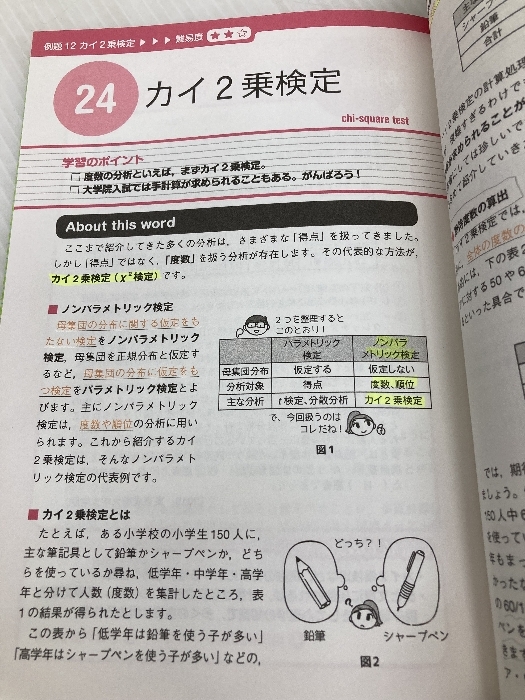 例題12 カイ2乗検定 ▶▶▶ 難易度 ★★☆
24 カイ2乗検定
chi-square test
学習のポイント
□ 度数の分析といえば，まずカイ2乗検定。
□ 大学院入試では手計算が求められることもある。がんばろう！
About this word
ここまで紹介してきた多くの分析は，さまざまな「得点」を扱ってきました。
しかし「得点」ではなく，「度数」を扱う分析が存在します。その代表的な方法が，
カイ2乗検定（χ²検定）です。
■ ノンパラメトリック検定
母集団の分布に関する仮定をも
たない検定をノンパラメトリック
検定，母集団を正規分布と仮定す
るなど，母集団の分布に仮定をも
つ検定をパラメトリック検定とよ
びます。主にノンパラメトリック
検定は，度数や順位の分析に用い
られます。これから紹介するカイ
2乗検定は，そんなノンパラメト
リック検定の代表例です。
2つを整理すると
このとおり！
パラメトリック検定 ノンパラメトリック検定
母集団分布 仮定する 仮定しない
分析対象 得点 度数、順位
主な分析 t検定、分散分析 カイ2乗検定
で、今回扱うのは
コレだね！
図1
■ カイ2乗検定とは
たとえば，ある小学校の小学生150人に，
主な筆記具として鉛筆かシャープペンか，どち
らを使っているか尋ね，低学年・中学年・高学
年と分けて人数（度数）を集計したところ，表
1の結果が得られたとします。
この表から「低学年は鉛筆を使う子が多い」
「高学年はシャープペンを使う子が多い」などの，
どっち？！
鉛筆
シャープペン
図2
シャープ
鉛筆
合計
乗検定の計算処理
求められることが
にしては珍しいで
て紹介していき
度数の算出
乗検定では，
全体の度数の
には，下の表2
に対する50や6
といった具合で
では，期
ましょう。
150人中6
を使ってい
年もまっ
かったな
の60/1
ペンを
きます
ア・